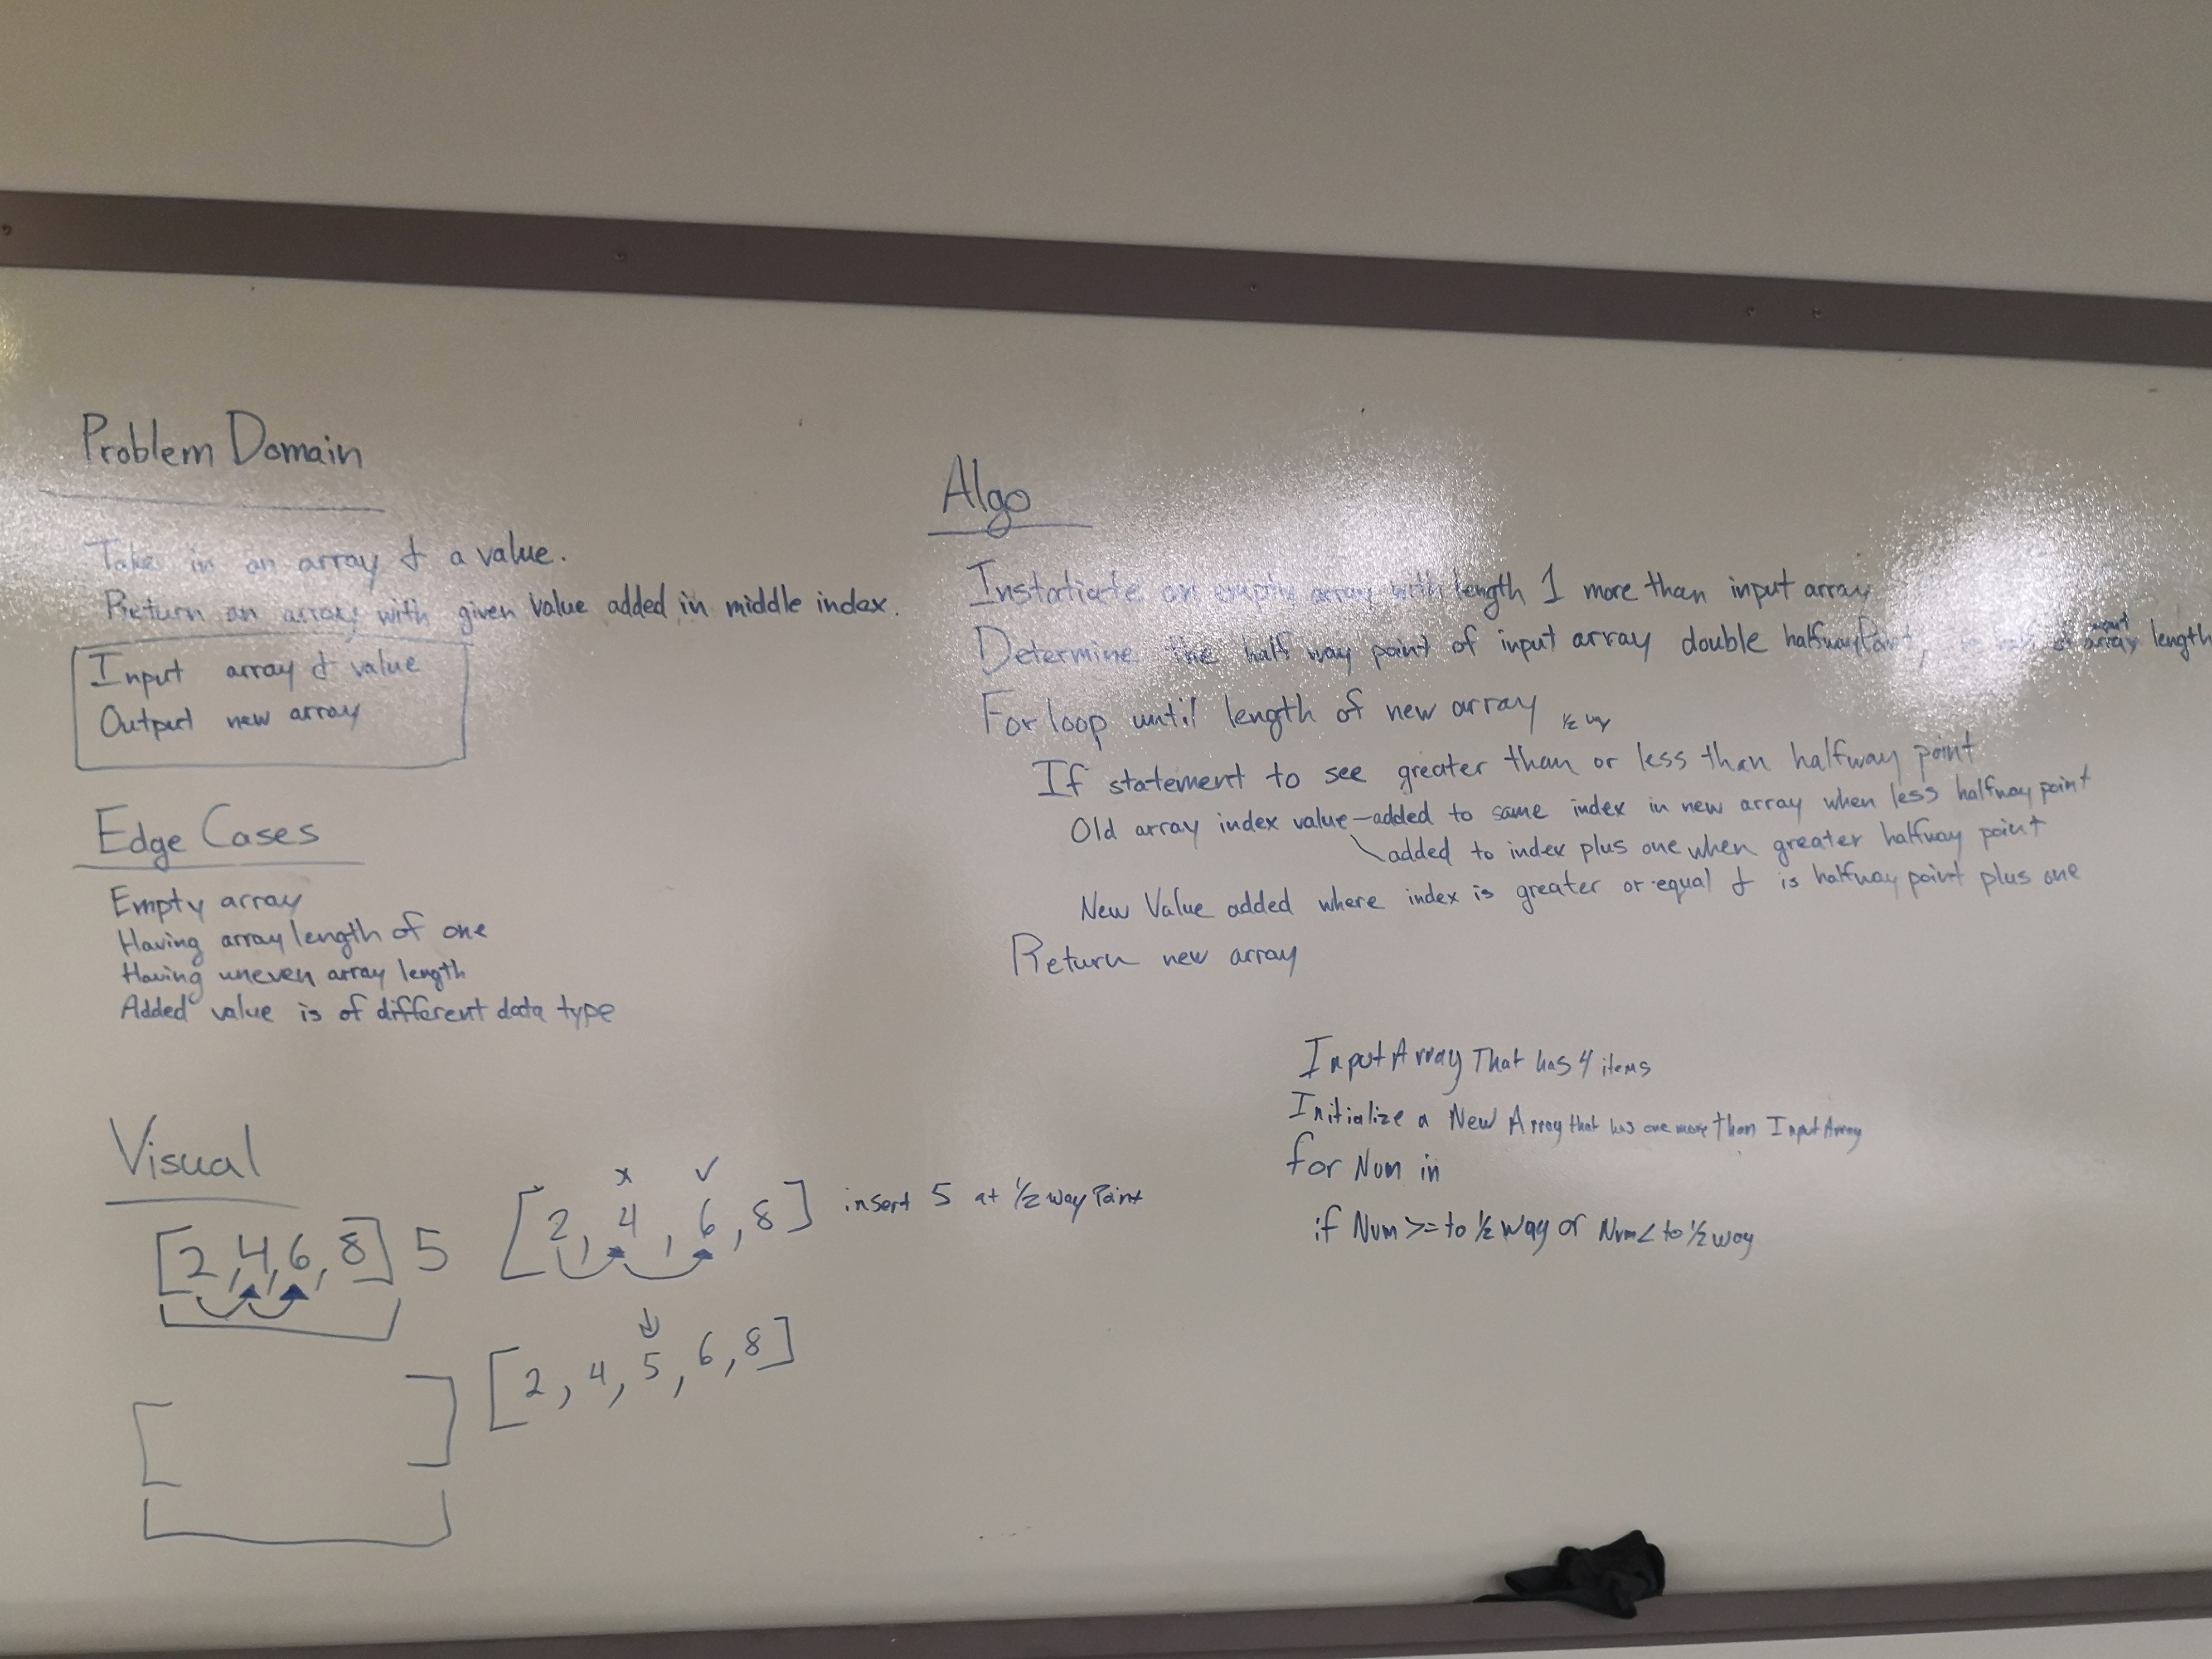 Problem Domain
Take in an array & a value.
Return an array with given value added in middle index.
Input array & value
Output new array
Edge Cases
Empty array
Having array length of one
Having uneven array length
Added value is of different data type
Visual
[2,4,6,8] 5
x ✓
[2, 4, 6, 8] insert 5 at 1/2 way Point
[2, 4, 5, 6, 8]
[ ]
Algo
Instatiate an empty array with length 1 more than input array
Determine the half way point of input array double halfwayPoint, input array length
For loop until length of new array 1/2 way
If statement to see greater than or less than halfway point
Old array index value – added to same index in new array when less halfway point
added to index plus one when greater halfway point
New Value added where index is greater or equal & is halfway point plus one
Return new array
Input Array That has 4 items
Initialize a New Array that has one more than Input Array
for Num in
if Num >= to 1/2 way or Num < to 1/2 way